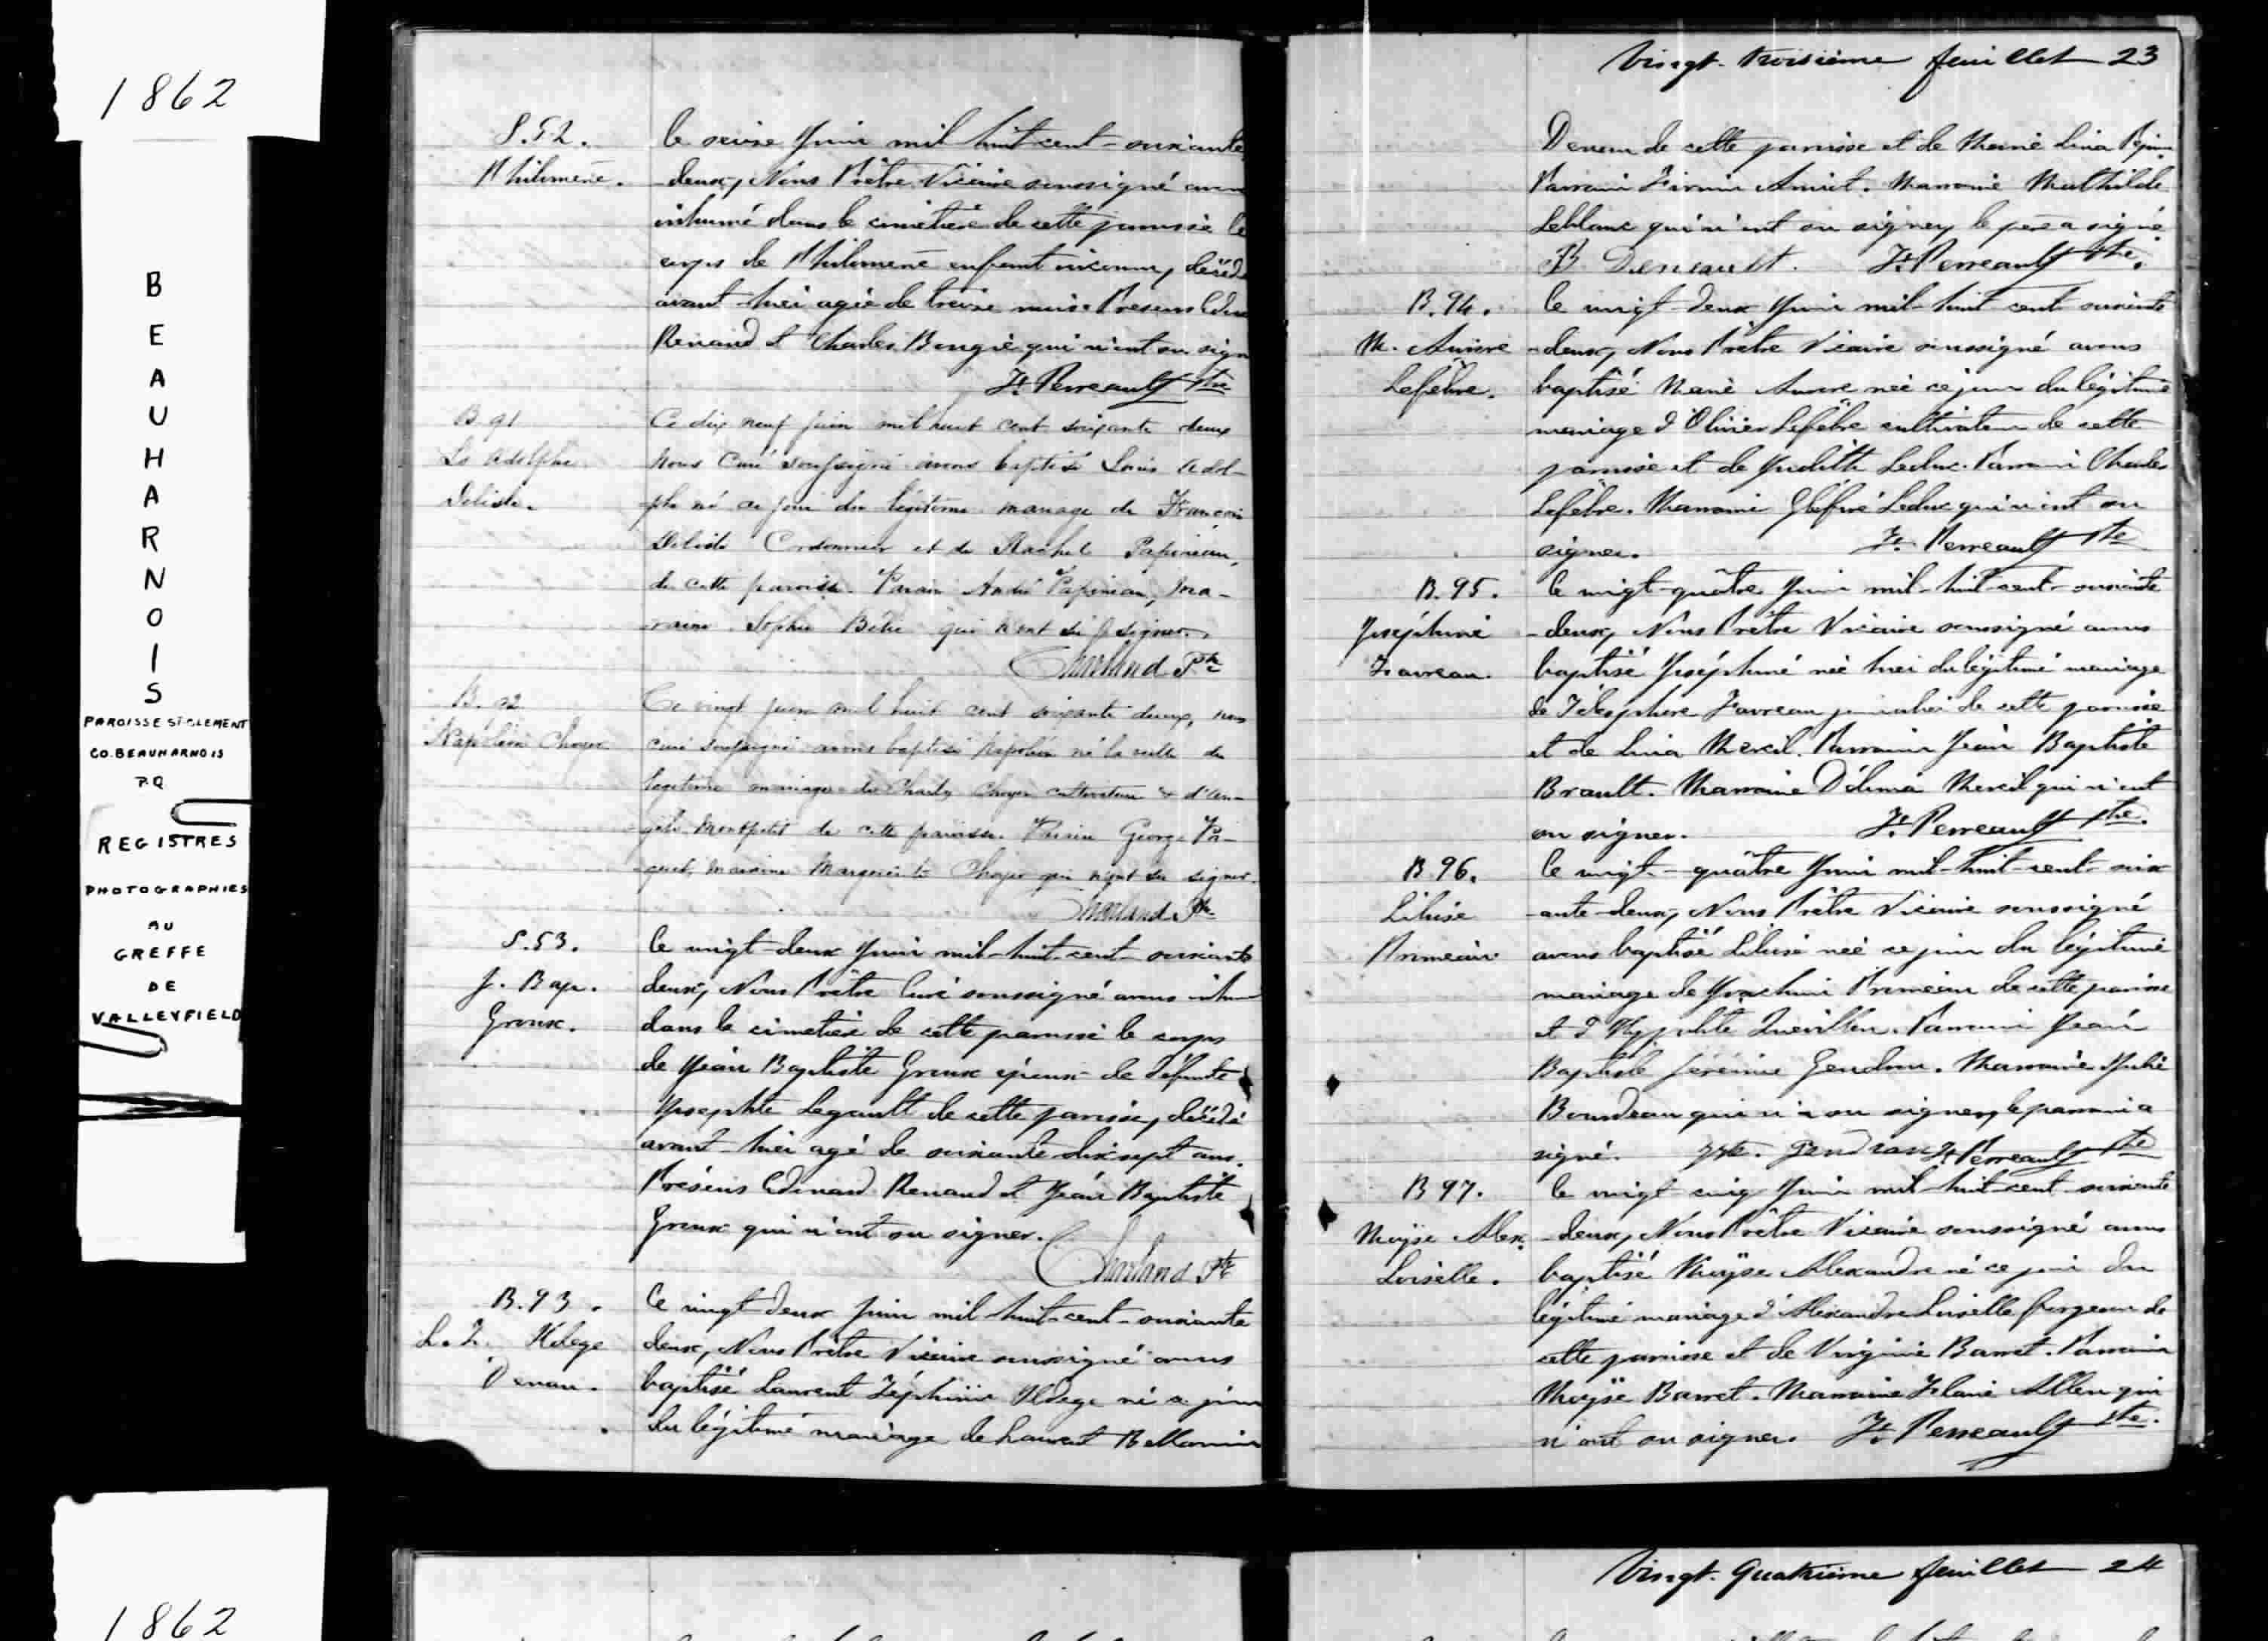 1862
BEAUHARNOIS
PAROISSE ST-CLEMENT
CO. BEAUHARNOIS
P.Q
REGISTRES
PHOTOGRAPHIES
AU
GREFFE
DE
VALLEYFIELD
S. 52.
Philomène.
le seize Juin mil huit cent soixante
-deux, Nous Prêtre Vicaire soussigné avons
inhumé dans le cimetière de cette paroisse le
corps de Philomène enfant inconnu, décédé
avant-hier agée de treize mois. Présens Edou
Renaud et Charles Bougie qui n'ont su sign
Ft. Perreault Ptre
B. 91
Ls Adolphe
Delisle.
Ce dix neuf juin mil huit cent soixante deux
nous Curé soussigné avons baptisé Louis Adol-
phe né ce jour du légitime mariage de François
Delisle Cordonnier et de Rachel Papineau,
de cette paroisse. Parain André Papineau, ma-
raine Sophie qui n'ont su signer.
Charland Ptre
B. 92
Napoléon Choyer
Ce vingt juin mil huit cent soixante deux, nous
curé soussigné avons baptisé Napoléon né la veille du
legitime mariage de Charles Choyer cultivateur & d'An-
gele Montpetit de cette paroisse. Parain George Pa-
quet, maraine Marguerite Choyer qui n'ont su signer.
Charland Ptre
S. 53.
J. Bap.
Groux.
le vingt-deux Juin mil-huit-cent-soixante
deux, Nous Prêtre Curé soussigné avons inhum
dans le cimetière de cette paroisse le corps
de Jean Baptiste Groux époux de défunte
Josephte Legault de cette paroisse, décédé
avant-hier agé de soixante-dix sept ans.
Présens Edouard Renaud et Jean Baptiste
Groux qui n'ont su signer.
Charland Ptre
B. 93.
L. Z. Ildege
Denau.
Ce vingt-deux juin mil-huit-cent-soixante
deux, Nous Prêtre Vicaire soussigné avons
baptisé Laurent Zéphirin Ildege né ce jour
du légitime mariage de Laurent Bellarmin
Vingt-troisième feuillet 23
Denau de cette paroisse et de Marie Lina
Parrain Firmin Amiot. Marraine Mathilde
Leblanc qui n'ont su signer, le père a signé.
B Deneault. Ft. Perreault Ptre.
B. 94.
M. Aurore
Lefebvre.
le vingt-deux Juin mil-huit-cent soixante
-deux, Nous Prêtre Vicaire soussigné avons
baptisé Marie Aurore née ce jour du légitime
mariage d'Olivier Lefebvre cultivateur de cette
paroisse et de Judith Leduc. Parrain Charles
Lefebvre. Marraine Leduc qui n'ont su
signer. Ft. Perreault Ptre
B. 95.
Joséphine
Favreau.
le vingt-quatre Juin mil-huit-cent-soixante
-deux, Nous Prêtre Vicaire soussigné avons
baptisé Joséphine née hier du légitime mariage
de Télesphore Favreau journalier de cette paroisse
et de Lina Mercil. Parrain Jean Baptiste
Brault. Marraine Délima Mercil qui n'ont
su signer. Ft. Perreault Ptre.
B. 96.
Liluse
Primeau
le vingt-quatre Juin mil-huit-cent-soix
-ante-deux, Nous Prêtre Vicaire soussigné
avons baptisé Liluse née ce jour du légitime
mariage de Joachim Primeau de cette paroisse
et d'Hyppolite Quevillon. Parrain Jean
Baptiste Jérémie Gendron. Marraine Julie
Bourdeau qui n'a su signer, le parrain a
signé. Gendron Ft. Perreault Ptre
B. 97.
Moÿse Alex.
Loiselle.
le vingt cinq Juin mil-huit-cent-soixante
-deux, Nous Prêtre Vicaire soussigné avons
baptisé Moÿse Alexandre né ce jour du
légitime mariage d'Alexandre Loiselle forgeron de
cette paroisse et de Virginie Barret. Parrain
Moÿse Barret. Marraine Flavie Allen qui
n'ont su signer. Ft. Perreault Ptre.
1862
Vingt-quatrième feuillet 24